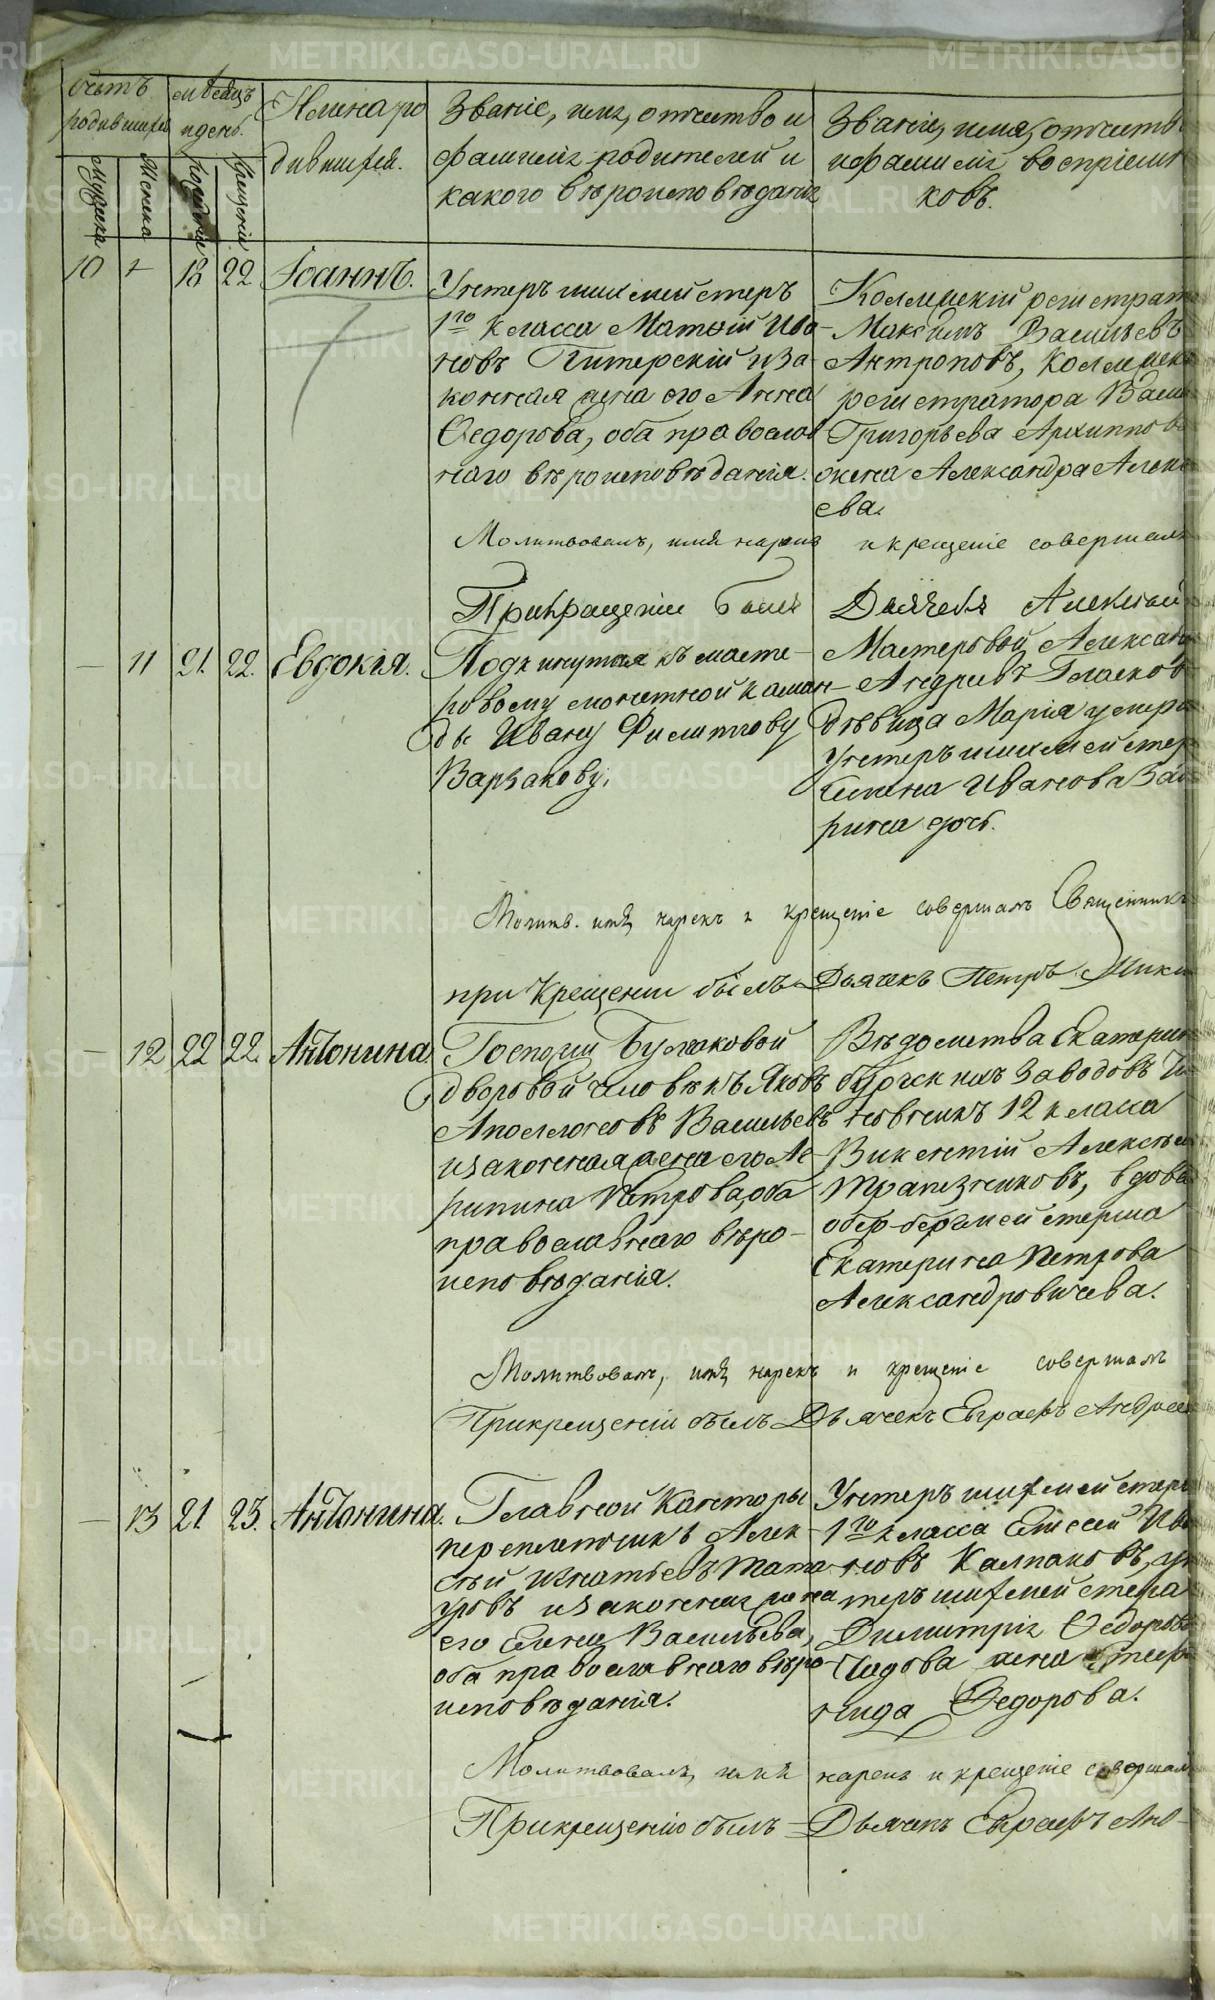 METRIKI.GASO-URAL.RU
Счетъ родившихся
Мужеска
Женска
Месяцъ и день
Рожденія
Крещенія
Имена родившихся.
Званіе, имя, отчество и
фамилія родителей и
какого вѣроисповѣданія
Званіе, имя, отчество
и фамилія воспріемни
ковъ.
10 - 18 22 Іоаннъ.
7
Унтеръ шихмейстеръ
1го класса Матѳій Ива
новъ Питерскій и за
конная жена его Анна
Ѳедорова, оба православ
наго вѣроисповѣданія.
Коллежскій регистрат
Максимъ Васильевъ
Антроповъ, Коллежск
регистратора Васи
Григорьева Архипово
жена Александра Алекс
ева.
Молитвовалъ, имя нарекъ и крещеніе совершалъ
При крещеніи былъ Дьячекъ Алексѣй
— 11 21. 22. Евдокія.
Подкинутая къ масте-
ровому монетной коман-
ды Ивану Филиппову
Варзакову.
Мастеровой Алексан
Андреевъ Глазков
дѣвица Марія умерш
Унтеръ шихмейстер
Иванова
рина дочь.
Молитв. имя нарекъ и крещеніе совершалъ Священникъ
при Крещеніи былъ Дьячекъ Петръ Мики
— 12 22 22. Антонина
Госпожи Булгаковой
дворовой человѣкъ Яковъ
Аполлоновъ Васильевъ
и законная жена его Аг
рипина Петрова, оба
православнаго вѣро-
исповѣданія.
Вѣдомства Екатерин
бургскихъ Заводовъ Чи
новникъ 12 класа
Викентій Алексѣев
Трапезниковъ, вдова
обер-бергмейстерша
Екатерина Петрова
Александровичева.
Молитвовалъ, имя нарекъ и крещеніе совершалъ
При крещеніи былъ Дьячекъ Евграфъ Андрее
— 13 21 23. Антонина.
Главной Канторы
переплетчикъ Алек-
сѣй Игнатьевъ Тата
уровъ и законная жена
его Елена Васильева,
оба православнаго вѣро-
исповѣданія.
Унтеръ шихмейстеръ
1го класса Елисей Ива
новъ Калпаковъ, ун
теръ шихмейстера
Димитрія Ѳедорова
жена Степа
нида Ѳедорова.
Молитвовалъ, имя нарекъ и крещеніе совершал
При крещеніи былъ — Дьячекъ Евграфъ Анд-